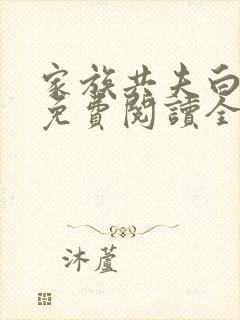 家族共夫白
免費閱讀全
沐蘆